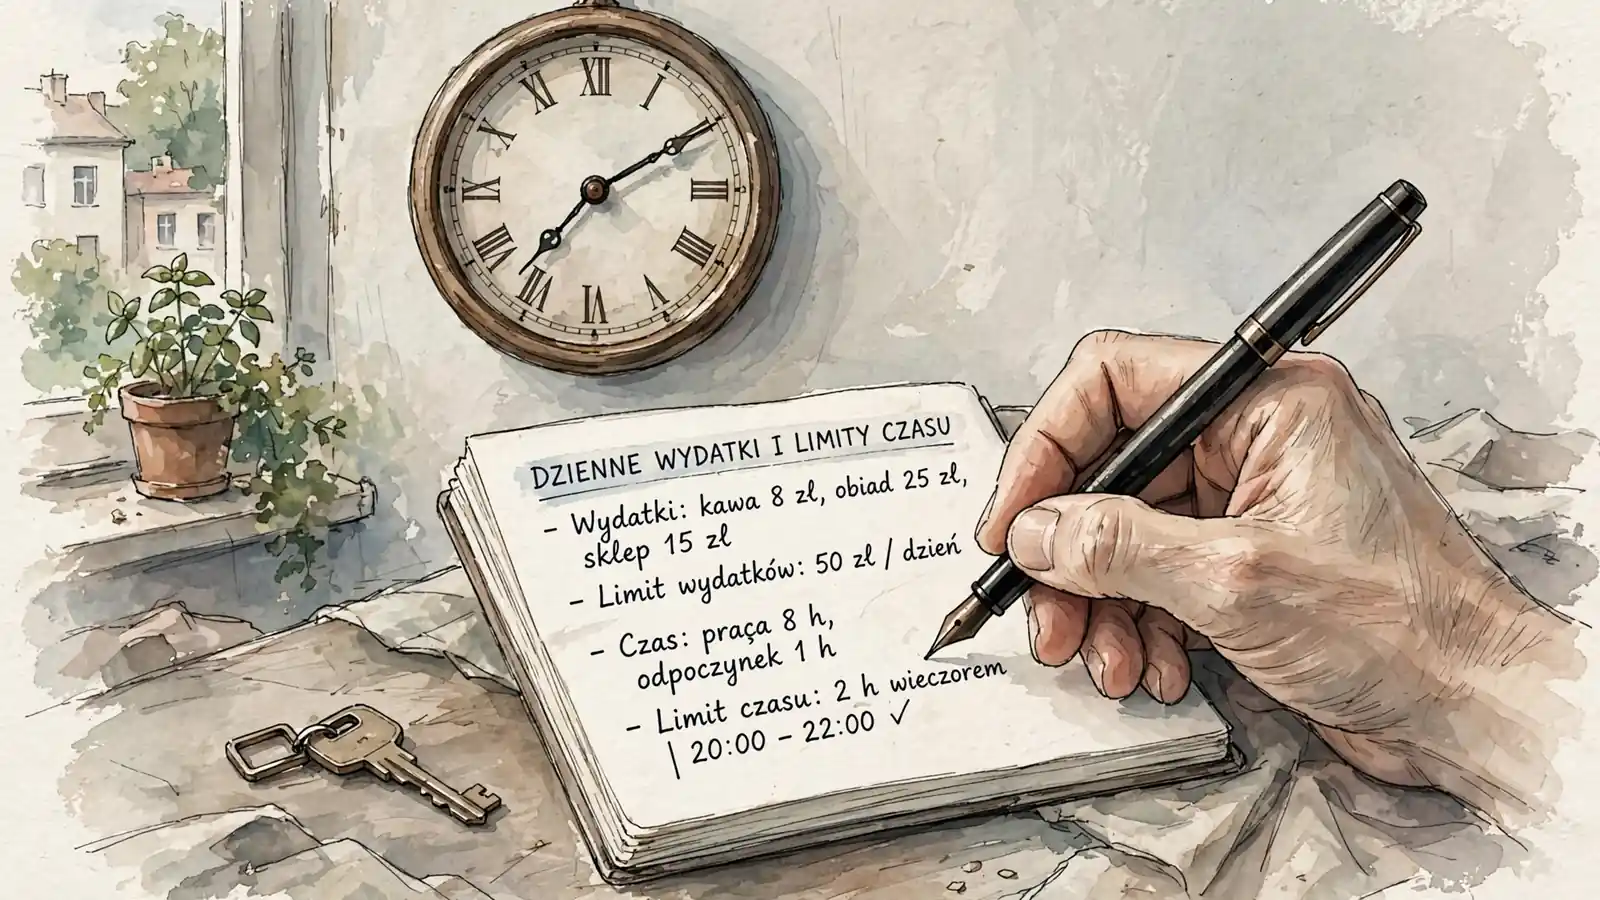 XII
I
II
III
IIII
V
VI
VII
VIII
IX
X
XI
DZIENNE WYDATKI I LIMITY CZASU
– Wydatki: kawa 8 zł, obiad 25 zł,
sklep 15 zł
– Limit wydatków: 50 zł / dzień
– Czas: praca 8 h,
odpoczynek 1 h
– Limit czasu: 2 h wieczorem
| 20:00 – 22:00 ✓